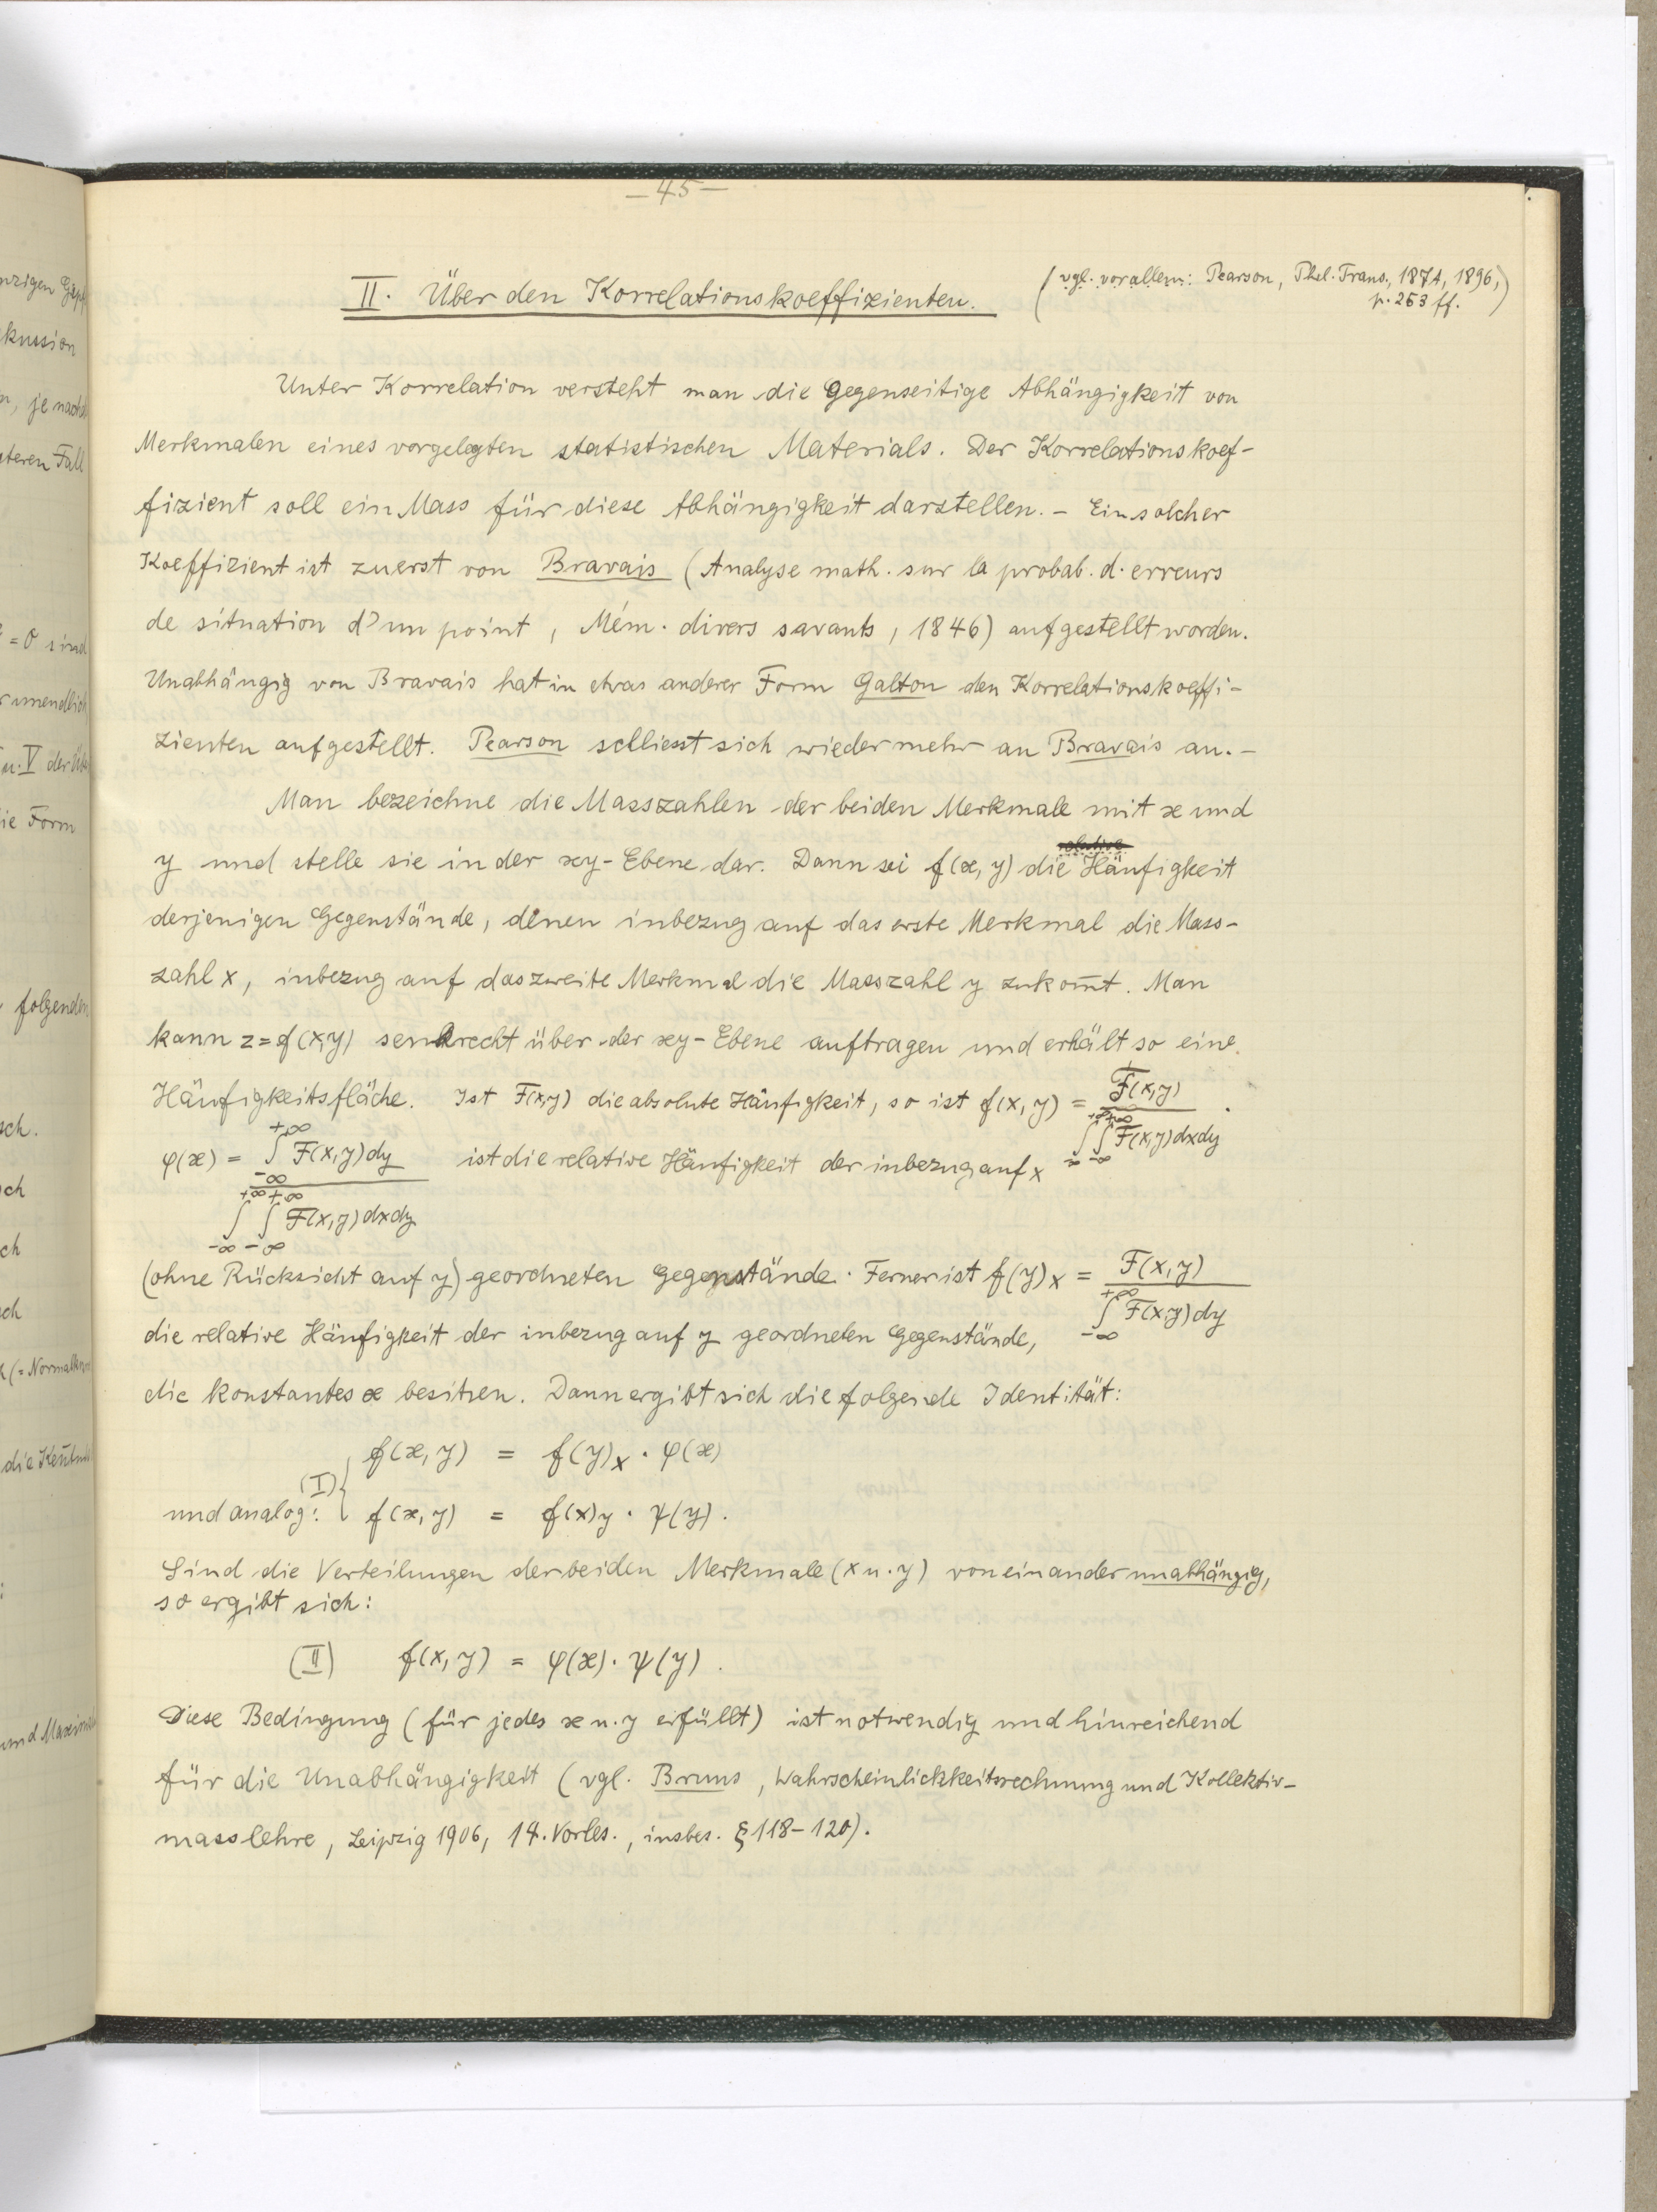 — 45 —
II. Über den Korrelationskoeffizienten.
(vgl. vor allem: Pearson, Phil. Trans., 187A, 1896,
p. 253 ff.)
Unter Korrelation versteht man die gegenseitige Abhängigkeit von
Merkmalen eines vorgelegten statistischen Materials. Der Korrelationskoef-
fizient soll ein Mass für diese Abhängigkeit darstellen. – Ein solcher
Koeffizient ist zuerst von Bravais (Analyse math. sur la probab. d. erreurs
de situation d'un point, Mém. divers savants, 1846) aufgestellt worden.
Unabhängig von Bravais hat in etwas anderer Form Galton den Korrelationskoeffi-
zienten aufgestellt. Pearson schliesst sich wieder mehr an Bravais an. –
Man bezeichne die Masszahlen der beiden Merkmale mit x und
relative
y und stelle sie in der xy-Ebene dar. Dann sei f(x, y) die Häufigkeit
derjenigen Gegenstände, denen inbezug auf das erste Merkmal die Mass-
zahl x, inbezug auf das zweite Merkmal die Masszahl y zukom̄t. Man
kann z = f(x,y) senkrecht über der xy-Ebene auftragen und erhält so eine
Häufigkeitsfläche. Ist F(x,y) die absolute Häufigkeit, so ist f(x, y) = F(x,y) / ∫_{-∞}^{+∞} ∫_{-∞}^{+∞} F(x,y) dx dy .
φ(x) = ∫_{-∞}^{+∞} F(x,y) dy / ∫_{-∞}^{+∞} ∫_{-∞}^{+∞} F(x,y) dx dy ist die relative Häufigkeit der inbezug auf x
(ohne Rücksicht auf y) geordneten Gegenstände. Ferner ist f(y)ₓ = F(x,y) / ∫_{-∞}^{+∞} F(x,y) dy
die relative Häufigkeit der inbezug auf y geordneten Gegenstände,
die konstantes x besitzen. Dann ergibt sich die folgende Identität:
f(x, y) = f(y)ₓ · φ(x)
(I) {
und analog: f(x, y) = f(x)y · ψ(y).
Sind die Verteilungen der beiden Merkmale (x u. y) voneinander unabhängig,
so ergibt sich:
(II) f(x, y) = φ(x) · ψ(y).
Diese Bedingung (für jedes x u. y erfüllt) ist notwendig und hinreichend
für die Unabhängigkeit (vgl. Bruns, Wahrscheinlichkeitsrechnung und Kollektiv-
masslehre, Leipzig 1906, 14. Vorles., insbes. § 118–120).
kussion
n, je nachd
teren Fall
= 0 sind
unendlich
u. V der
ie Form
folgenden
sch.
ch
ch
ch
(= Normalk
die
und